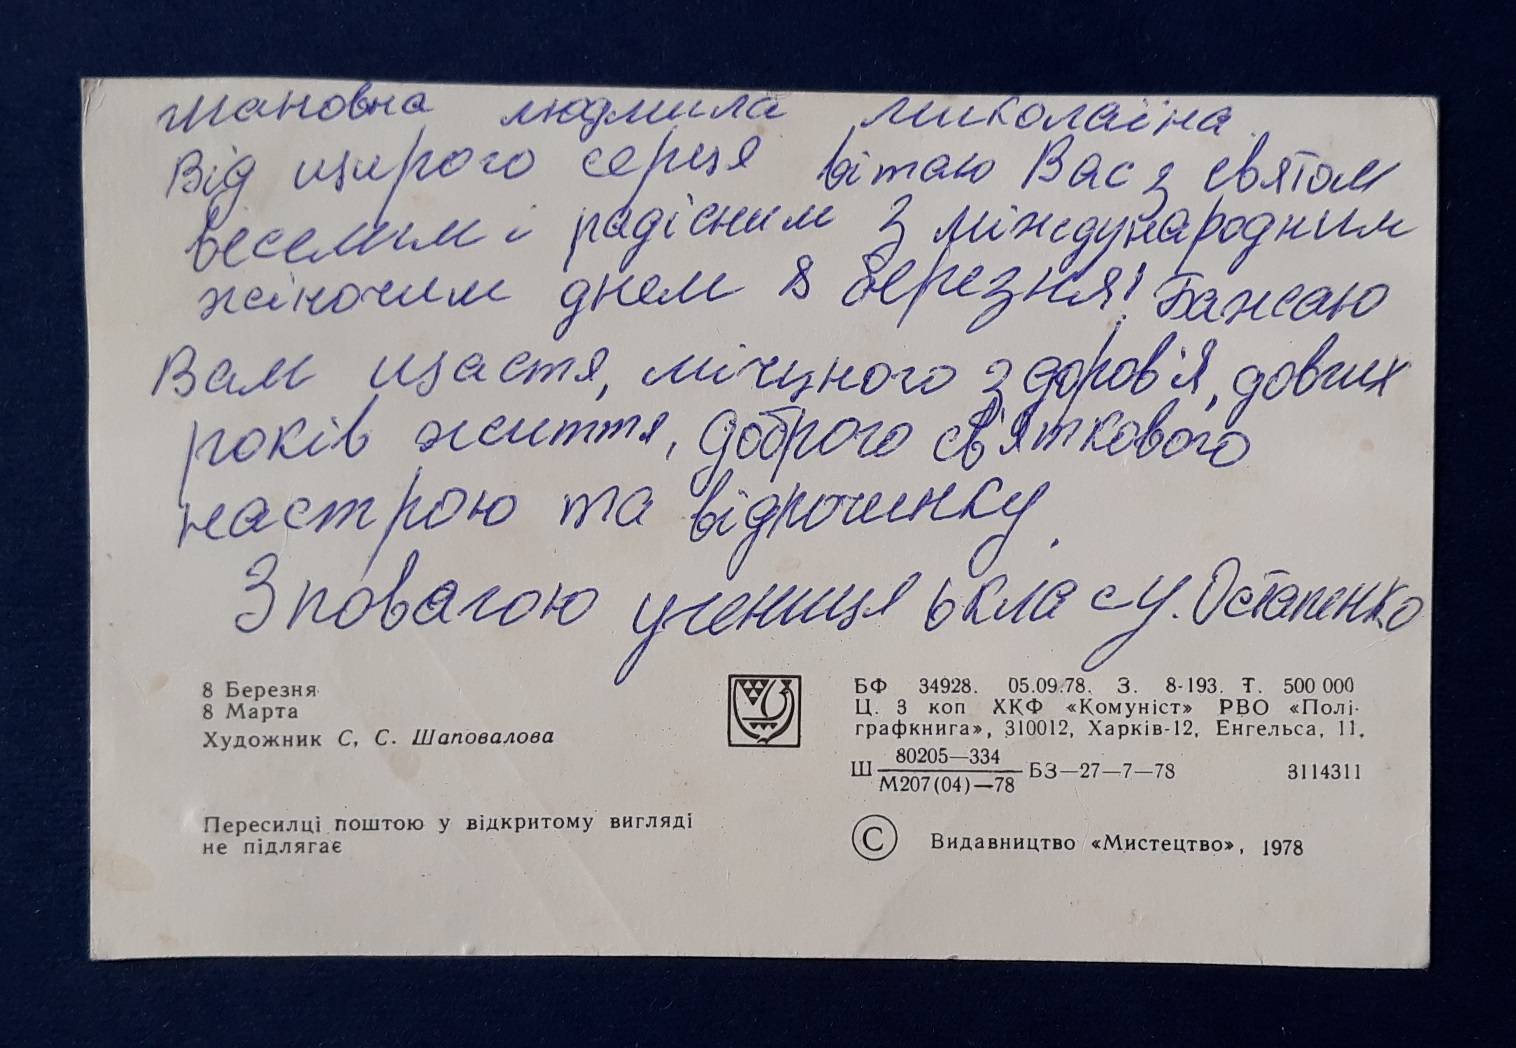 шановна людмила миколаїна.
Від щирого серця вітаю Вас з святом
веселим і радісним з міждународним
жіночим днем 8 березня! Бажаю
Вам щастя, мічцного здоров'я, довгих
років життя, доброго св'яткового
настрою та відпочинку.
З повагою учениця 6 класу. Остапенко
8 Березня
8 Марта
Художник С, С. Шаповалова
Пересилці поштою у відкритому вигляді
не підлягає
БФ 34928. 05.09.78. З. 8-193. Т. 500 000
Ц. 3 коп ХКФ «Комуніст» РВО «Полі-
графкнига», 310012, Харків-12, Енгельса, 11.
80205—334
Ш М207(04)—78 БЗ—27—7—78 3114311
© Видавництво «Мистецтво», 1978